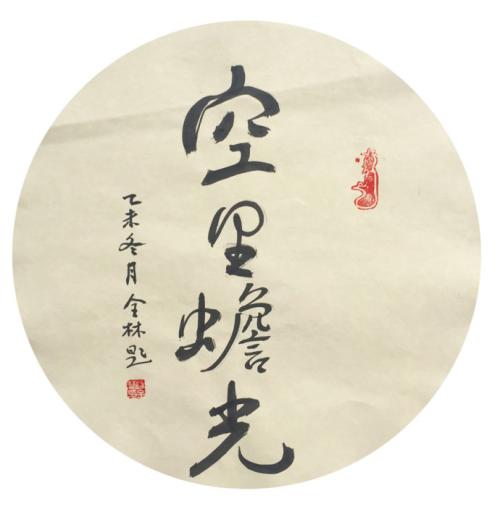 空里蟾光
乙未冬月全林題